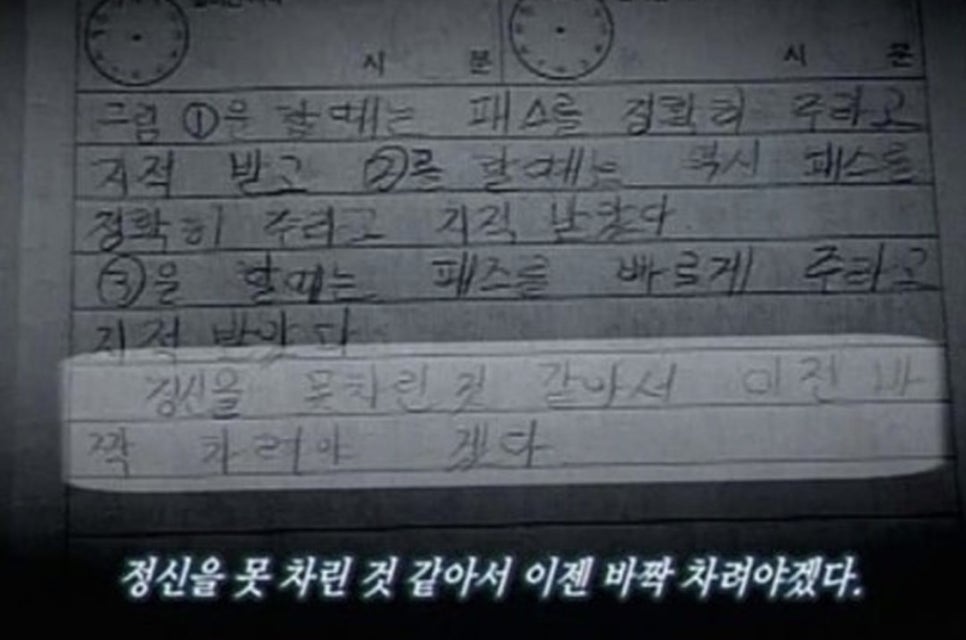 시 분 시 분
그림 ①을 할때는 패스를 정확히 주라고
지적 받고 ②를 할때는 역시 패스를
정확히 주라고 지적 받았다.
③을 할때는 패스를 빠르게 주라고
지적 받았다
정신을 못차린 것 같아서 이젠 바
짝 차려야 겠다.
정신을 못 차린 것 같아서 이젠 바짝 차려야겠다.